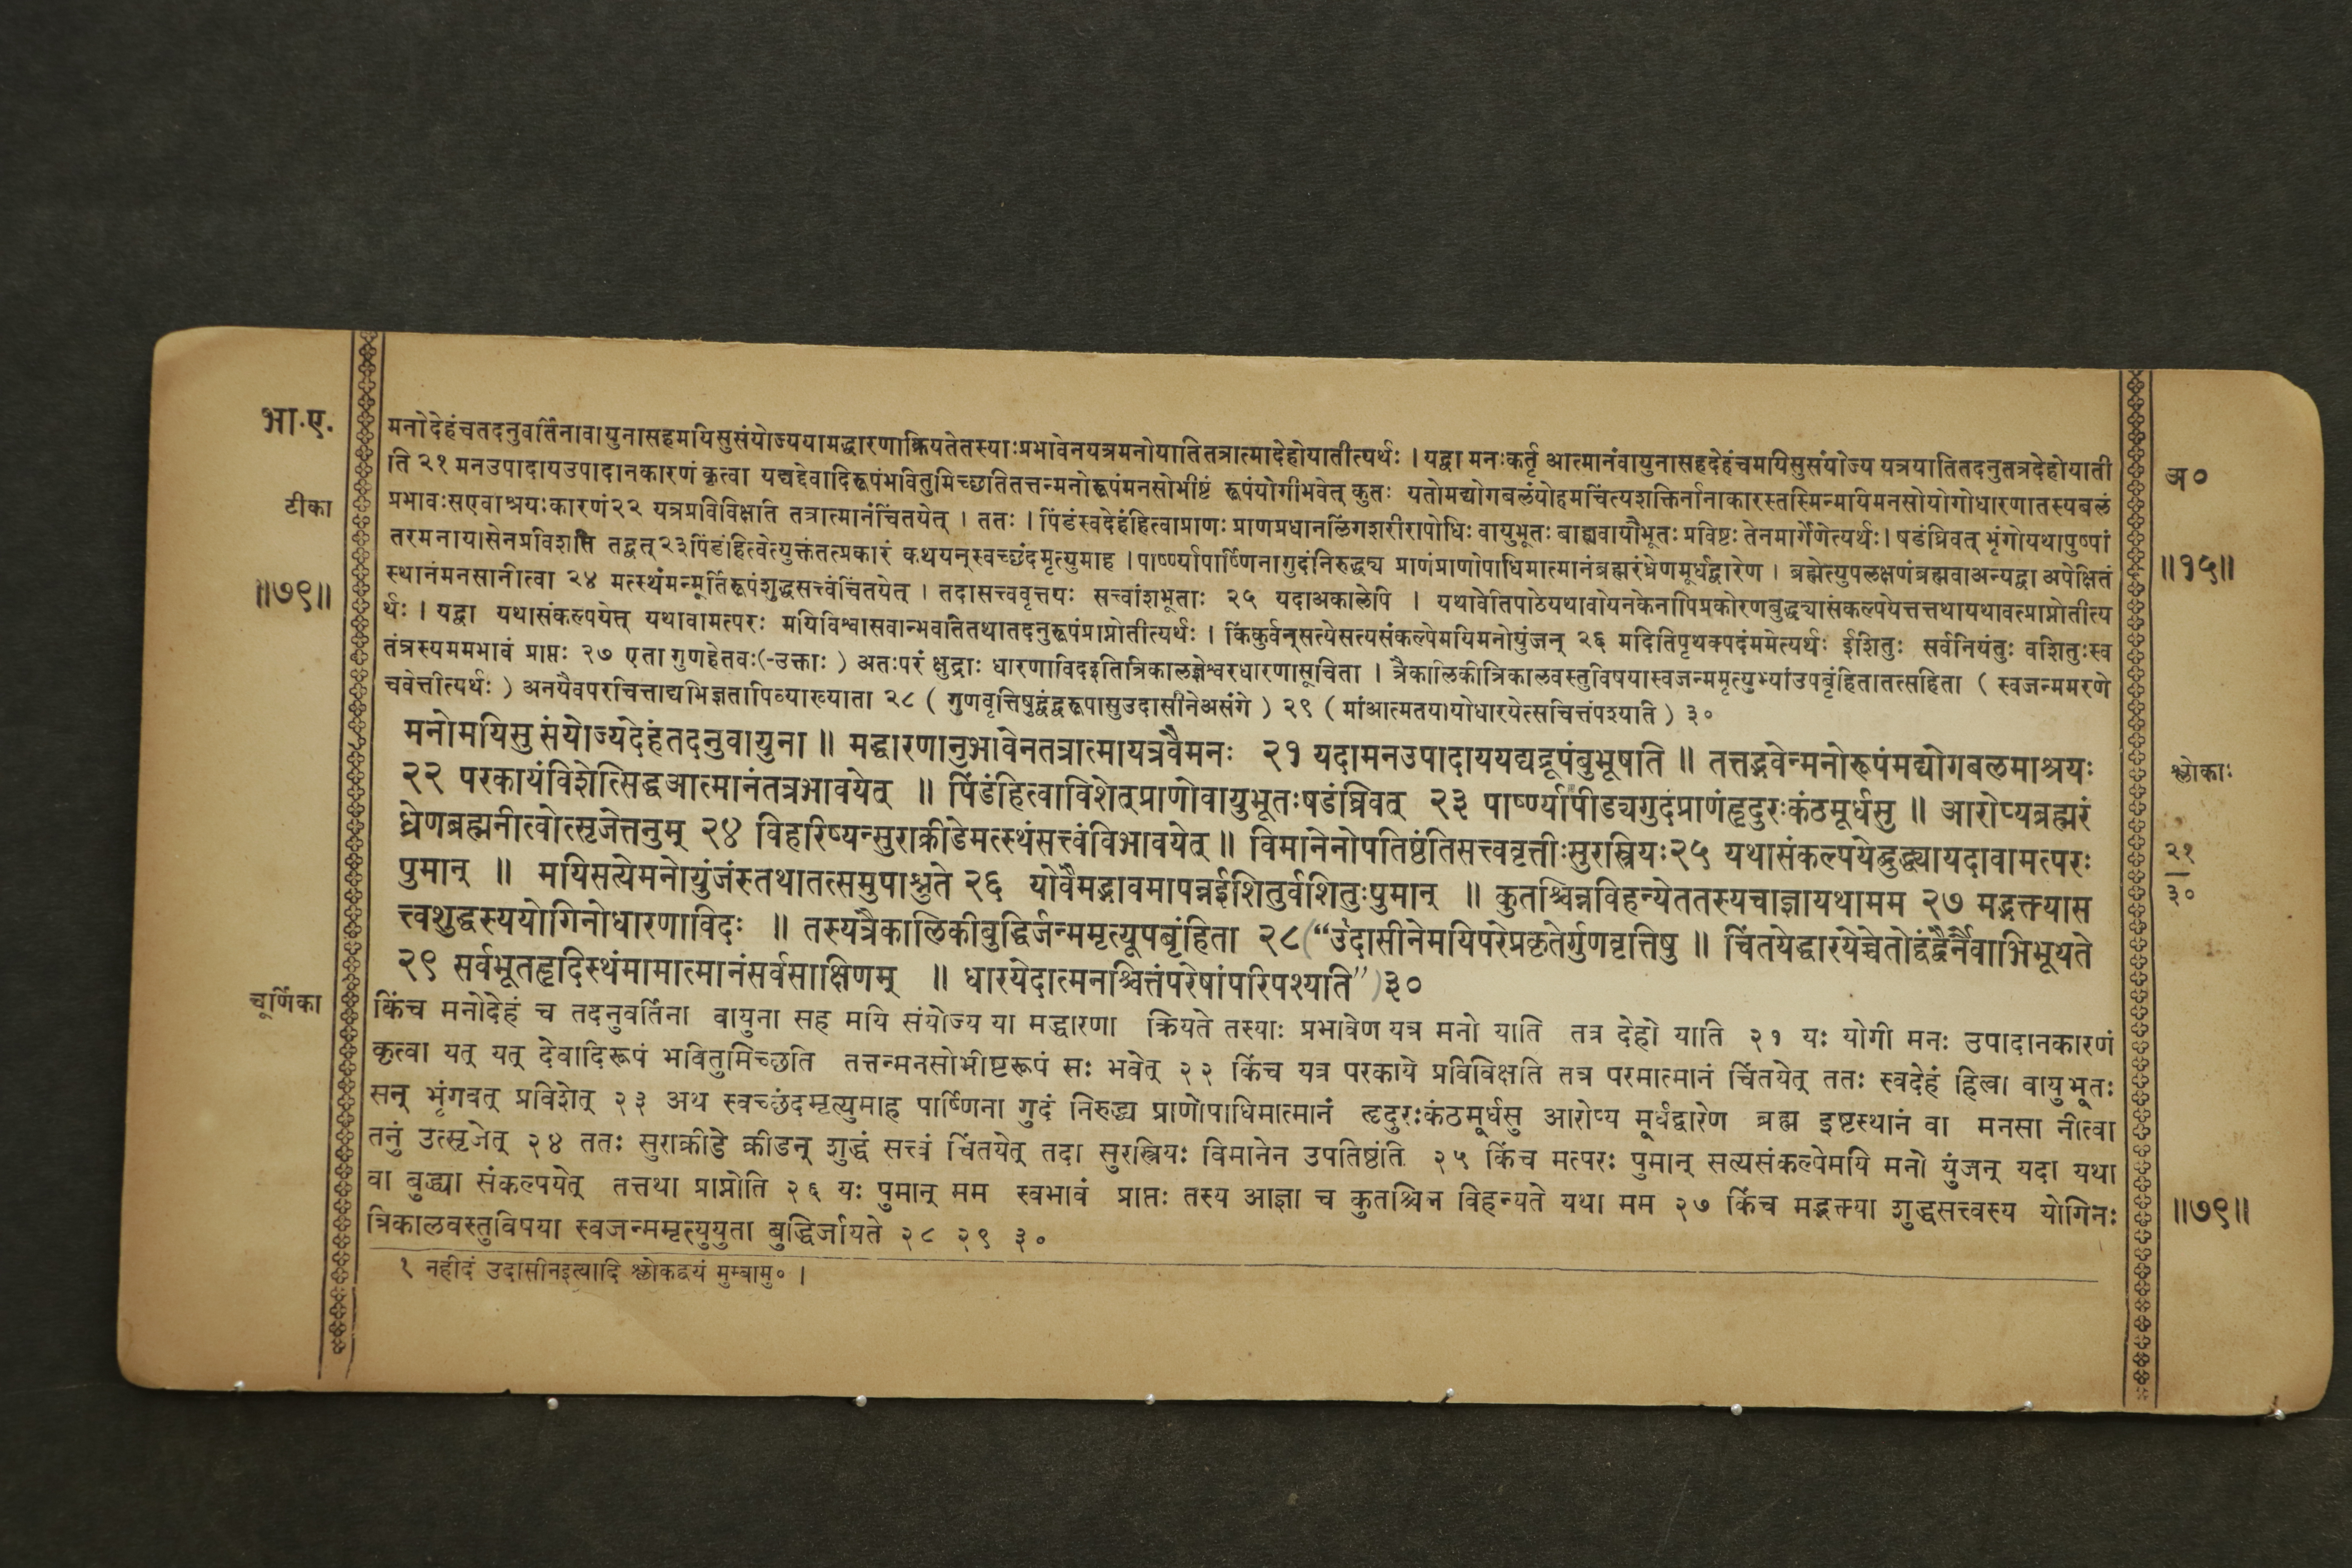 भा.ए.
टीका
॥७९॥
मनोदेहंचतदनुवर्तिनावायुनासहमयिसुसंयोज्ययामद्धारणाक्रियतेतस्याःप्रभावेनयत्रमनोयातितत्रात्मादेहोयातीत्यर्थः । यद्वा मनःकर्तृ आत्मानंवायुनासहदेहंचमयिसुसंयोज्य यत्रयातितदनुतत्रदेहोयाती
ति २१ मनउपादायउपादानकारणं कृत्वा यद्यद्देवादिरूपंभवितुमिच्छतितत्तन्मनोरूपंमनसोभीष्टं रूपंयोगीभवेत् कुतः यतोमद्योगबलंयोहमचिंत्यशक्तिर्नानाकारस्तस्मिन्मयिमनसोयोगोधारणातस्यबलं
प्रभावःसएवाश्रयःकारणं२२ यत्रप्रविविक्षति तत्रात्मानंचिंतयेत् । ततः । पिंडंस्वदेहंहित्वाप्राणः प्राणप्रधानलिंगशरीरापोधिः वायुभूतः बाह्यवायौभूतः प्रविष्टः तेनमार्गेणेत्यर्थः। षडंघ्रिवत् भृंगोयथापुष्पां
तरमनायासेनप्रविशति तद्वत्२३पिंडंहित्वेत्युक्तंतत्प्रकारं कथयन्स्वच्छंदमृत्युमाह । पार्ष्ण्यापार्ष्णिनागुदंनिरुद्ध्य प्राणंप्राणोपाधिमात्मानंब्रह्मरंध्रेणमूर्धद्वारेण । ब्रह्मेत्युपलक्षणंब्रह्मवाअन्यद्वा अपेक्षितं
स्थानंमनसानीत्वा २४ मत्स्थंमन्मूर्तिरूपंशुद्धसत्त्वंचिंतयेत् । तदासत्त्ववृत्तयः सत्त्वांशभूताः २५ यदाअकालेपि । यथावेतिपाठेयथावोयेनकेनापिप्रकोरणबुद्ध्यासंकल्पयेत्तत्तथायथावत्प्राप्नोतीत्य
र्थः । यद्वा यथासंकल्पयेत् यथावामत्परः मयिविश्वासवान्भवतितथातदनुरूपंप्राप्नोतीत्यर्थः । किंकुर्वन्सत्येसत्यसंकल्पेमयिमनोयुंजन् २६ मदितिपृथक्पदंममेत्यर्थः ईशितुः सर्वनियंतुः वशितुःस्व
तंत्रस्यममभावं प्राप्तः २७ एता गुणहेतवः(-उक्ताः ) अतःपरं क्षुद्राः धारणाविदइतित्रिकालज्ञेश्वरधारणासूचिता । त्रैकालिकीत्रिकालवस्तुविषयास्वजन्ममृत्युभ्यांउपबृंहितातत्सहिता ( स्वजन्ममरणे
चवेत्तीत्यर्थः ) अनयैवपरचित्ताद्यभिज्ञतापिव्याख्याता २८ ( गुणवृत्तिषुद्वंद्वरूपासुउदासीनेअसंगे ) २९ ( मांआत्मतयायोधारयेत्सचित्तंपश्यति ) ३०
मनोमयिसुसंयोज्यदेहंतदनुवायुना ॥ मद्धारणानुभावेनतत्रात्मायत्रवैमनः २१ यदामनउपादाययद्यद्रूपंबुभूषति ॥ तत्तद्भवेन्मनोरूपंमद्योगबलमाश्रयः
२२ परकायंविशेत्सिद्धआत्मानंतत्रभावयेत् ॥ पिंडंहित्वाविशेत्प्राणोवायुभूतःषडंघ्रिवत् २३ पार्ष्ण्यापीड्यगुदंप्राणंहृदुरःकंठमूर्धसु ॥ आरोप्यब्रह्मरं
ध्रेणब्रह्मनीत्वोत्सृजेत्तनुम् २४ विहरिष्यन्सुराक्रीडेमत्स्थंसत्त्वंविभावयेत् ॥ विमानेनोपतिष्ठंतिसत्त्ववृत्तीःसुरस्त्रियः२५ यथासंकल्पयेद्बुद्ध्यायदावामत्परः
पुमान् ॥ मयिसत्येमनोयुंजंस्तथातत्समुपाश्नुते २६ योवैमद्भावमापन्नईशितुर्वशितुःपुमान् ॥ कुतश्चिन्नविहन्येततस्यचाज्ञायथामम २७ मद्भक्त्यास
त्त्वशुद्धस्ययोगिनोधारणाविदः ॥ तस्यत्रैकालिकीबुद्धिर्जन्ममृत्यूपबृंहिता २८(“उ१दासीनेमयिपरेप्रकृतेर्गुणवृत्तिषु ॥ चिंतयेद्धारयेच्चेतोद्वंद्वैर्नैवाभिभूयते
२९ सर्वभूतहृदिस्थंमामात्मानंसर्वसाक्षिणम् ॥ धारयेदात्मनश्चित्तंपरेषांपरिपश्यति”)३०
चूर्णिका
किंच मनोदेहं च तदनुवर्तिना वायुना सह मयि संयोज्य या मद्धारणा क्रियते तस्याः प्रभावेण यत्र मनो याति तत्र देहो याति २१ यः योगी मनः उपादानकारणं
कृत्वा यत् यत् देवादिरूपं भवितुमिच्छति तत्तन्मनसोभीष्टरूपं सः भवेत् २२ किंच यत्र परकाये प्रविविक्षति तत्र परमात्मानं चिंतयेत् ततः स्वदेहं हित्वा वायुभूतः
सन् भृंगवत् प्रविशेत् २३ अथ स्वच्छंदमृत्युमाह पार्ष्णिना गुदं निरुद्ध्य प्राणोपाधिमात्मानं हृदुरःकंठमूर्धसु आरोप्य मूर्धद्वारेण ब्रह्म इष्टस्थानं वा मनसा नीत्वा
तनुं उत्सृजेत् २४ ततः सुराक्रीडे क्रीडन् शुद्धं सत्त्वं चिंतयेत् तदा सुरस्त्रियः विमानेन उपतिष्ठंति २५ किंच मत्परः पुमान् सत्यसंकल्पेमयि मनो युंजन् यदा यथा
वा बुद्ध्या संकल्पयेत् तत्तथा प्राप्नोति २६ यः पुमान् मम स्वभावं प्राप्तः तस्य आज्ञा च कुतश्चिन्न विहन्यते यथा मम २७ किंच मद्भक्त्या शुद्धसत्त्वस्य योगिनः
त्रिकालवस्तुविषया स्वजन्ममृत्युयुता बुद्धिर्जायते २८ २९ ३०
१ नहीदं उदासीनइत्यादि श्लोकद्वयं मुम्बामु० ।
अ०
॥१५॥
श्लोकाः
२१
३०
॥७९॥